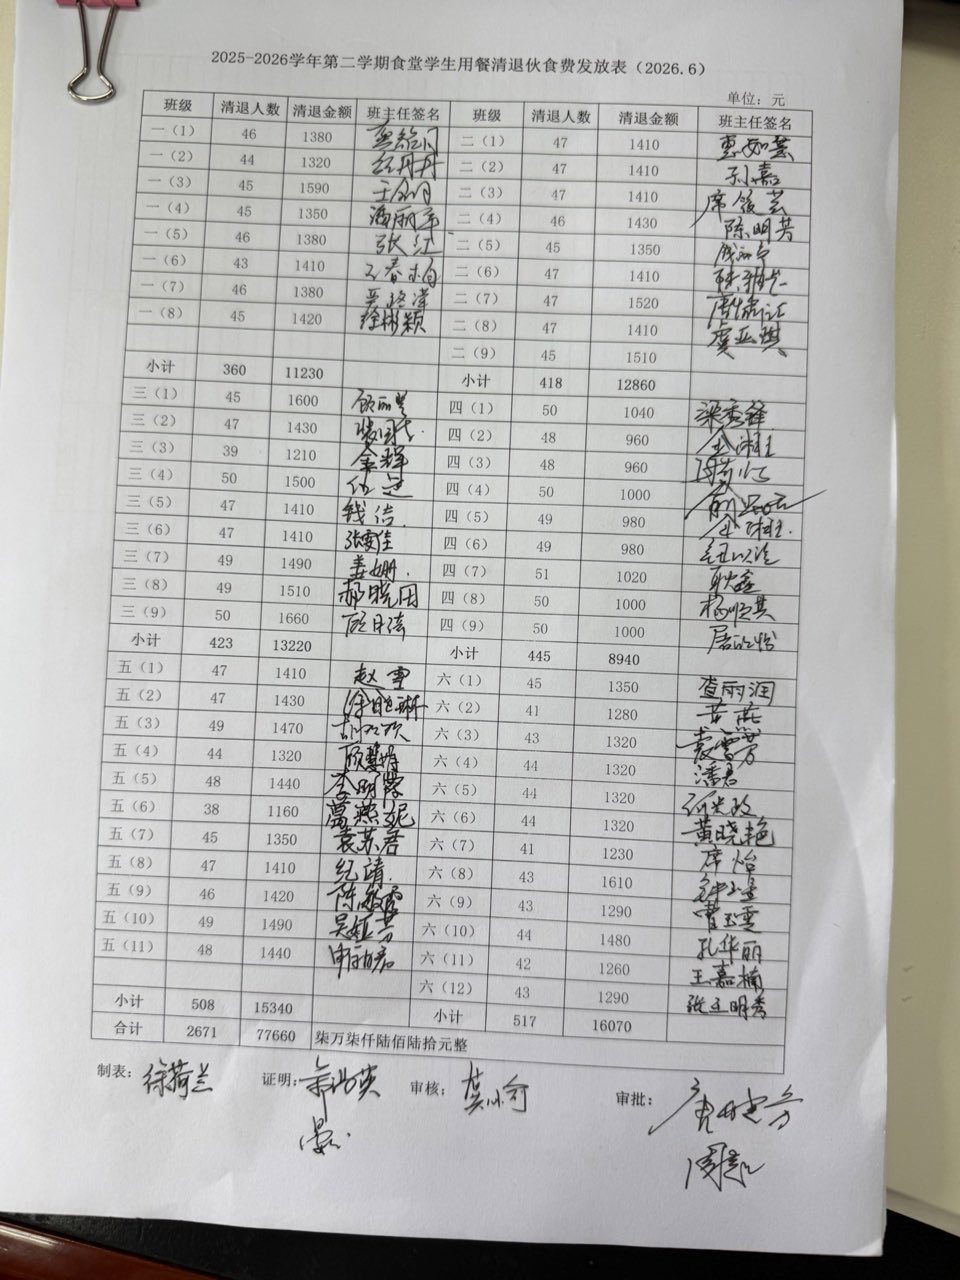 2025-2026学年第二学期食堂学生用餐清退伙食费发放表（2026.6）
单位：元
班级 清退人数 清退金额 班主任签名 班级 清退人数 清退金额 班主任签名
一（1） 46 1380 二（1） 47 1410 惠如芸
一（2） 44 1320 纪丹丹 二（2） 47 1410 孙嘉
一（3） 45 1590 二（3） 47 1410 席筱芸
一（4） 45 1350 潘丽华 二（4） 46 1430 陈明芳
一（5） 46 1380 张红 二（5） 45 1350
一（6） 43 1410 二（6） 47 1410
一（7） 46 1380 二（7） 47 1520
一（8） 45 1420 徐彬颖 二（8） 47 1410 虞亚琪
二（9） 45 1510
小计 360 11230 小计 418 12860
三（1） 45 1600 四（1） 50 1040 梁秀锋
三（2） 47 1430 四（2） 48 960
三（3） 39 1210 金辉 四（3） 48 960
三（4） 50 1500 四（4） 50 1000
三（5） 47 1410 钱洁 四（5） 49 980
三（6） 47 1410 张雯佳 四（6） 49 980
三（7） 49 1490 姜姗 四（7） 51 1020 耿鑫
三（8） 49 1510 郝晓田 四（8） 50 1000 杨顺其
三（9） 50 1660 四（9） 50 1000
小计 423 13220 小计 445 8940
五（1） 47 1410 赵雪 六（1） 45 1350 查丽润
五（2） 47 1430 六（2） 41 1280 黄燕
五（3） 49 1470 六（3） 43 1320 袁雪芳
五（4） 44 1320 顾慧娟 六（4） 44 1320 潘君
五（5） 48 1440 李明蓉 六（5） 44 1320
五（6） 38 1160 葛燕妮 六（6） 44 1320 黄晓艳
五（7） 45 1350 袁苏君 六（7） 41 1230 席怡
五（8） 47 1410 纪靖 六（8） 43 1610
五（9） 46 1420 陈敏霞 六（9） 43 1290 曹玉雯
五（10） 49 1490 吴娅芳 六（10） 44 1480 孔华丽
五（11） 48 1440 申丽君 六（11） 42 1260 王嘉楠
六（12） 43 1290
小计 508 15340 小计 517 16070
合计 2671 77660 柒万柒仟陆佰陆拾元整
制表：徐荷兰 证明： 审核： 审批：